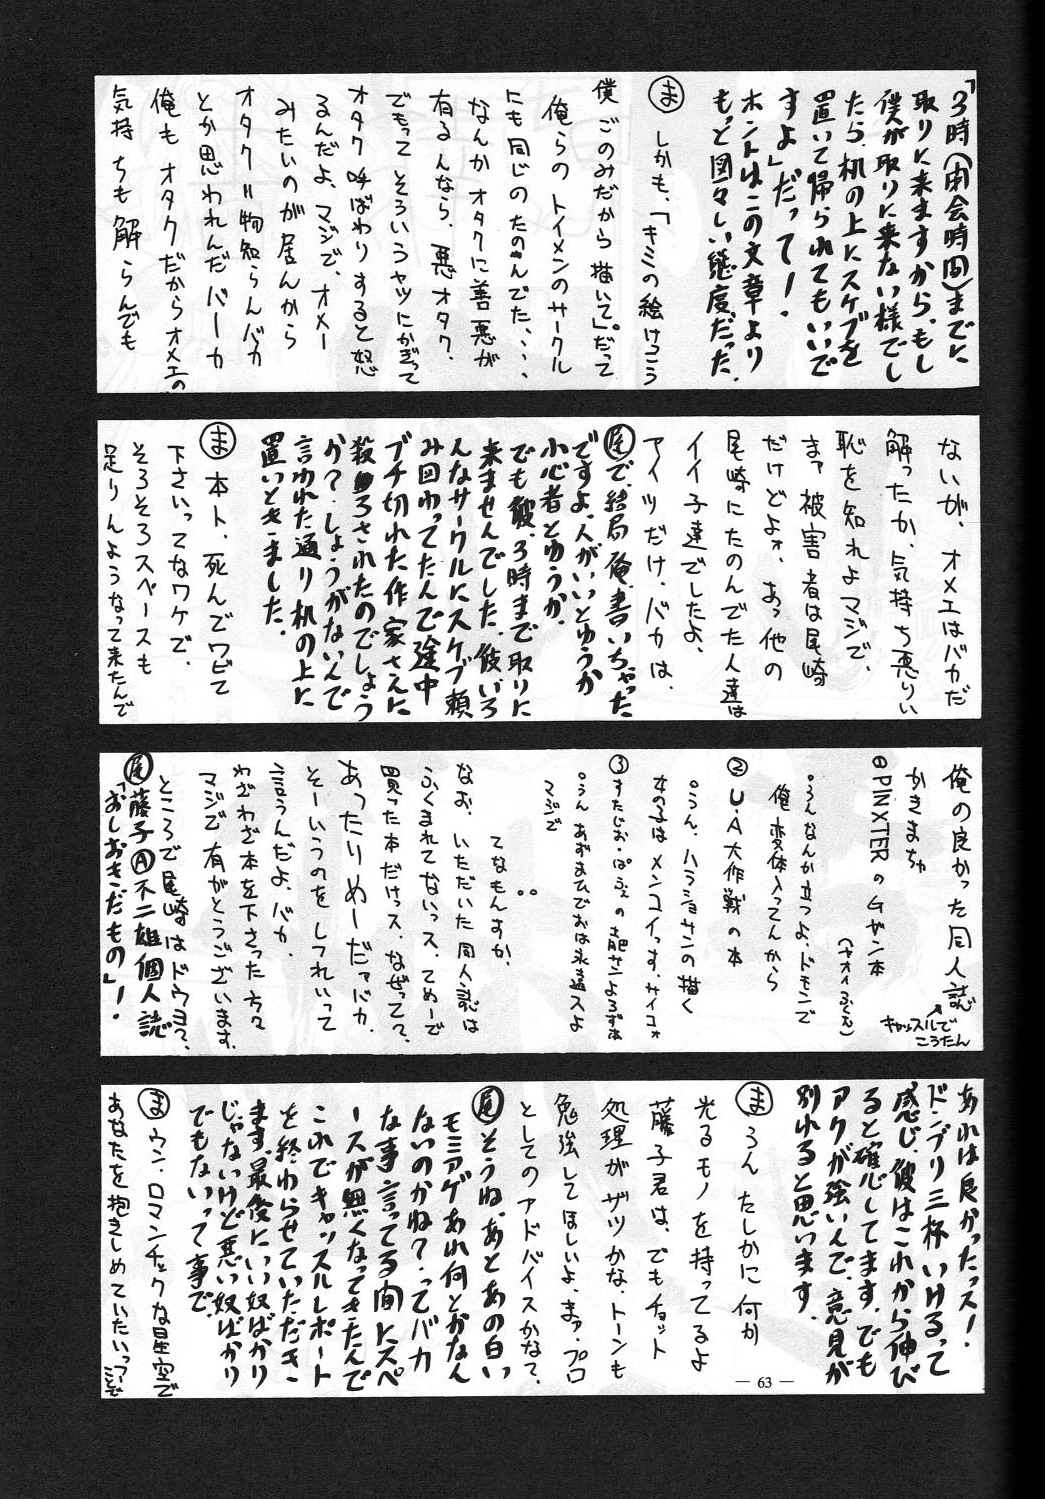 「3時(閉会時間)までに
取りに来ますから、もし
僕が取りに来ない様でし
たら、机の上にスケブを
置いて帰られてもいいで
すよ」だって!
ホントはこの文章より
もっと図々しい態度だった.
ま しかも、「キミの絵けっこう
僕ごのみだから描いて」だって。
俺らのトイメンのサークル
にも同じのたのんでた、、、、
なんかオタクに善悪が
有るんなら、悪オタク.
でもって そろいうヤツにかぎって
オタク呼ばわりすると怒
るんだよ、マジで、オメー
みたいのが居んから
オタク=物知らんバカ
とか思われんだバーカ
俺もオタクだからオメエの
気持ちも解らんでも
ないが、オメエはバカだ
解ったか、気持ち悪りい
恥を知れよマジで、
まァ被害者は尾崎
だけどよォ、あっ他の
尾崎にたのんでた人達は
イイ子達でしたよ、
アイツだけ、バカは、
尾 で、結局俺、書いちゃった
ですよ、人がいいとゆうか
小心者とゆうか、
でも彼、3時まで取りに
来ませんでした、彼、いろ
んなサークルにスケブ頼
み回わってたんで途中
ブチ切れた作家さんに
殺ろされたのでしょう
か?、しょうがないんで
言われた通り机の上に
置いときました.
ま 本ト、死んでワビて
下さいってなワケで、
そろそろスペースも
足りんようなって来たんで
俺の良かった同人誌
キャッスルで
ころたん
かきまちゅ
①PINXTERのGガン本
(ヤオイふくむ)
○うんなんか立つよ、ドモンで
俺変体入ってんから
② U.A大作戦の本
○うん、ハラショサンの描く
女の子はメンコイっす、サイコォ
③ すたじお・ぱふぇの肥サンよろず本
○うん あずまひでおは永遠スよ
マジで
てなもんすか、
なお、いただいた同人誌は
ふくまれてないっス、てめーで
買った本だけっス、なぜって?、
あったりめーだァバカ.
そーいうのをしつれいって
言うんだよ、バカ.
わざわざ本を下さった方々
マジで有がとうございます.
ところで尾崎はドウヨ?、
尾 藤子Ⓐ不二雄個人誌
「おしおきだもの」!
あれは良かったス!
ドンブリ三杯いけるって
感じ、彼はこれから伸び
ると確心してます、でも
アクが強いんで、意見が
別れると思います.
ま うん たしかに何か
光るモノを持ってるよ
藤子君は、でもチョット
処理がザツかな、トーンも
勉強してほしいよ、まァ、プロ
としてのアドバイスかなァ、
尾 そうね、あとあの白い
モミアゲあれ何とかなん
ないのかね?、ってバカ
な事言ってる間にスペ
ースが無くなってきたんで
これでキャッスルレポート
を終わらせていただき
ます、最後にいい奴ばかり
じゃないけど悪い奴ばかり
でもないって事で.
ま ウン、ロマンチックな星空で
あなたを抱きしめていたいってことで
— 63 —